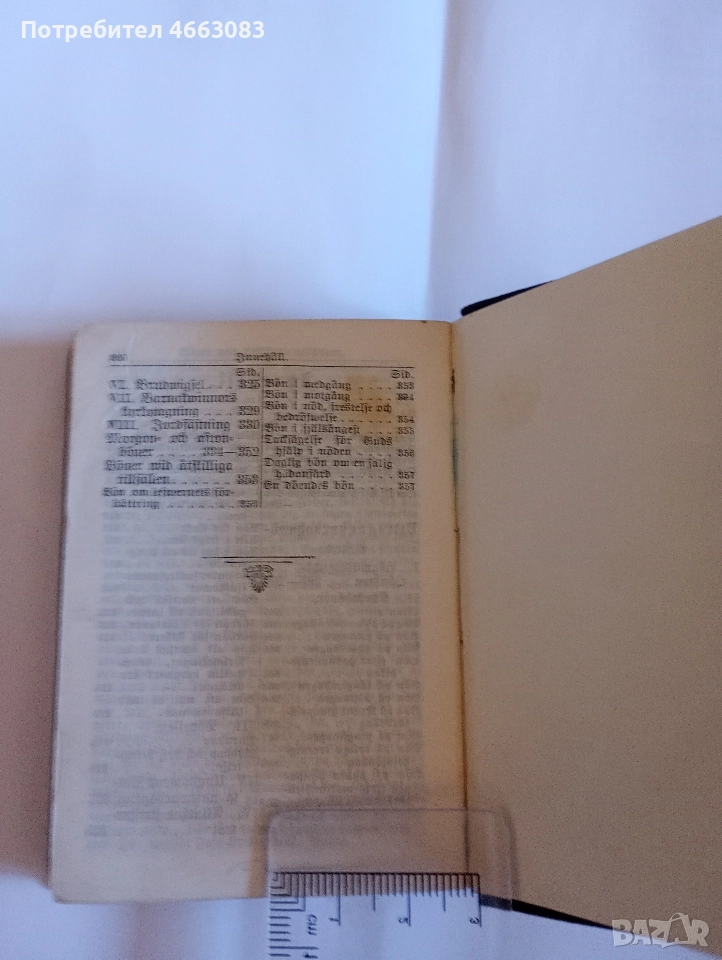 Потребител 4663083
Innehåll.
Sid.
VI. Brudwigsel . . . 325
VII. Barnakwinnors
kyrkotagning . . . 329
VIII. Jordfästning 330
Morgon- och afton-
böner . . . 334—352
Böner wid åtskilliga
tillfällen . . . . 353
Bön om lefwernets för-
bättring . . . . 353
Sid.
Bön i medgång . . . . 353
Bön i motgång . . . . 354
Bön i nöd, frestelse och
bedröfwelse . . . . 354
Bön i själsångest . . . 355
Tacksägelse för Guds
hjälp i nöden . . . . 356
Daglig bön om en salig
hädanfärd . . . . 357
En döendes bön . . . . 357
cm 1
BAZAR